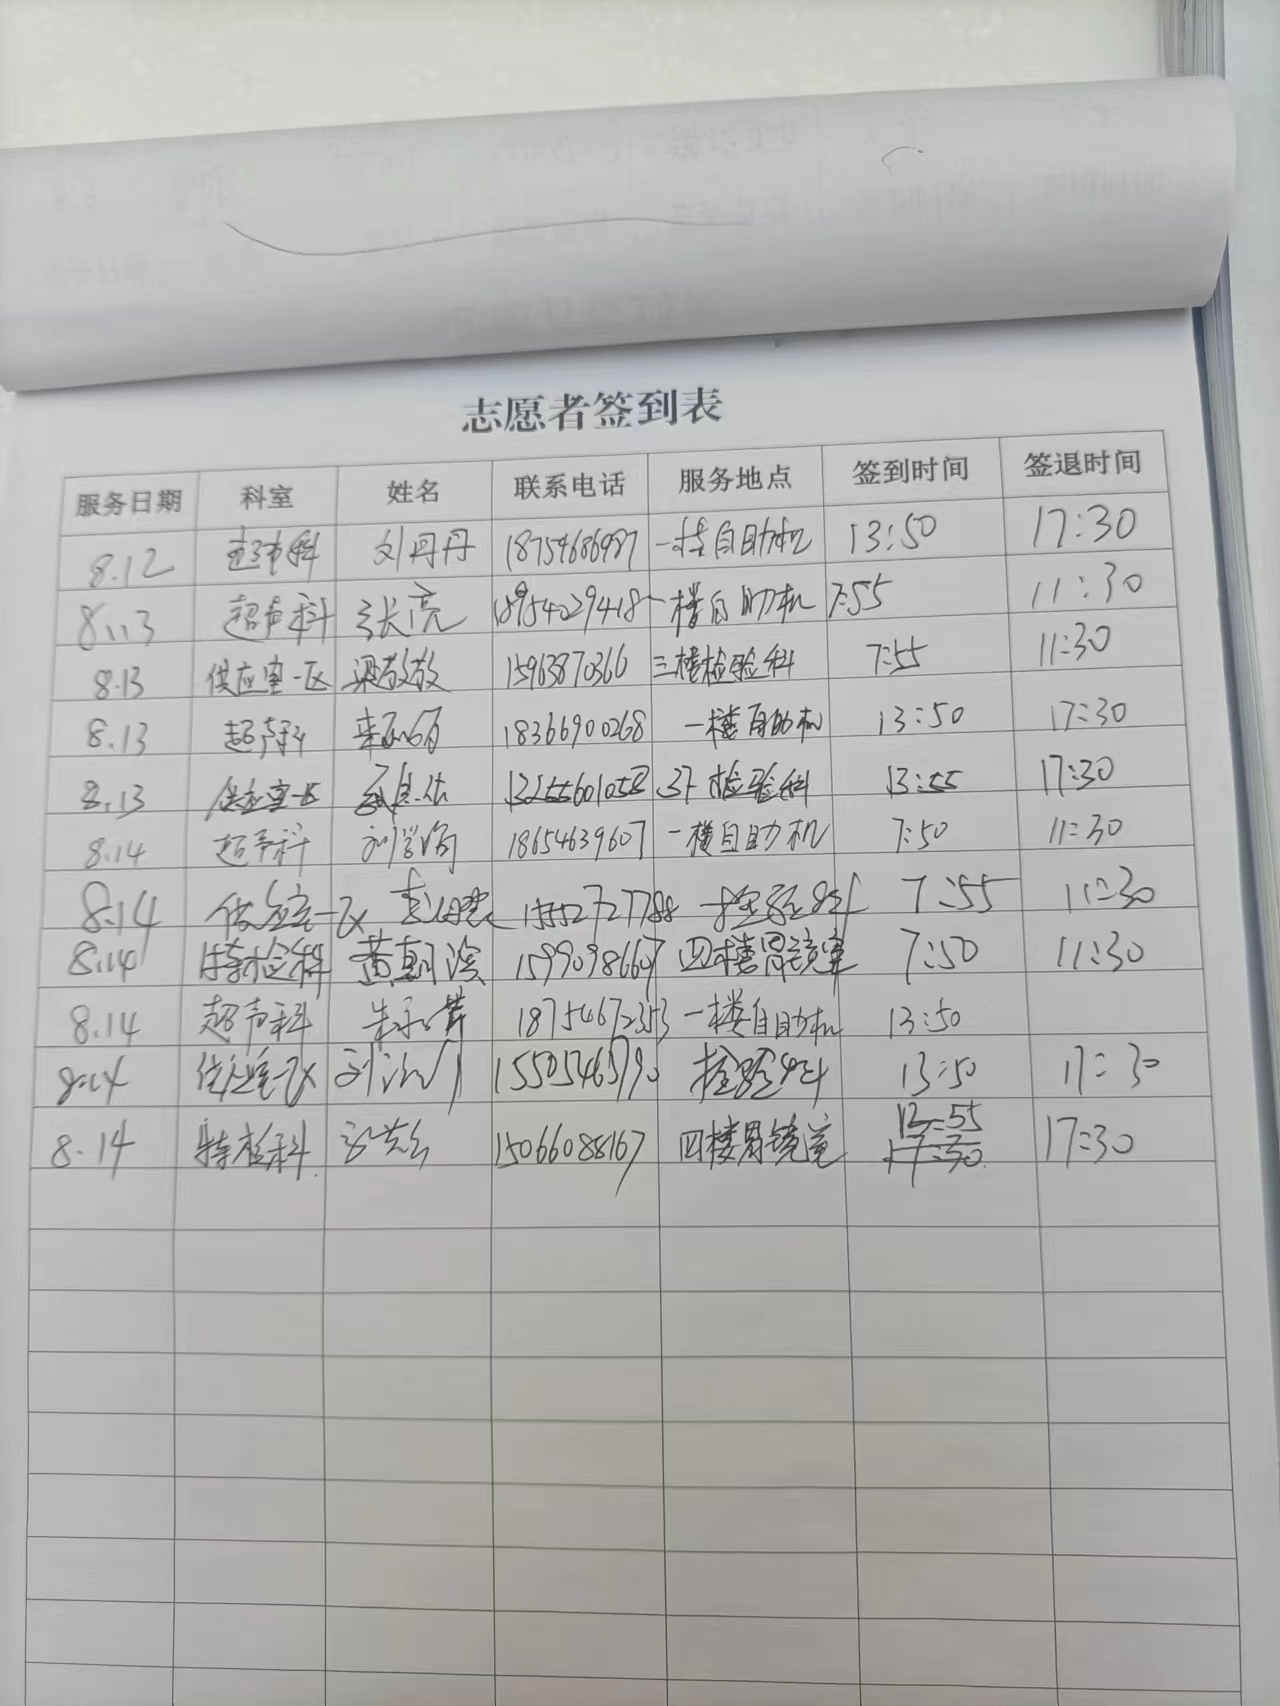 志愿者签到表
服务日期 科室 姓名 联系电话 服务地点 签到时间 签退时间
8.12 刘丹丹 18754686987 一楼自助机 13:50 17:30
8.13 超声科 张亮 18954029418 一楼自助机 7:55 11:30
8.13 供应室一区 梁敬敬 15963870366 三楼检验科 7:55 11:30
8.13 超声科 18366900268 一楼自助机 13:50 17:30
8.13 供应室一区 13255601058 3F检验科 13:55 17:30
8.14 超声科 18654639607 一楼自助机 7:50 11:30
8.14 供应室一区 15552727788 检验科 7:55 11:30
8.14 特检科 黄朝滨 1599098667 四楼胃镜室 7:50 11:30
8.14 超声科 18754672353 一楼自助机 13:50
8.14 供应室一区 检验科 13:50 17:30
8.14 特检科 15066088167 四楼胃镜室 13:55 17:30 17:30